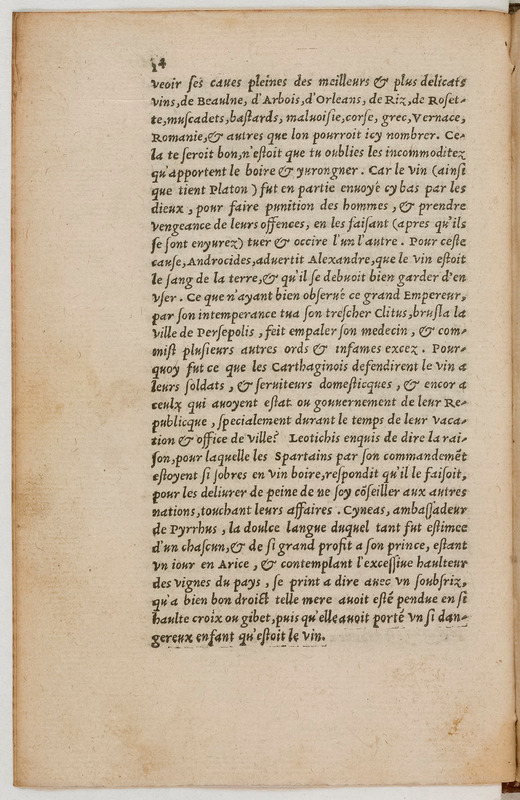 14
veoir ses caues pleines des meilleurs & plus delicats
vins, de Beaulne, d'Arbois, d'Orleans, de Riz, de Roset-
te, muscadets, bastards, maluoisie, corse, grec, Vernace,
Romanie, & autres que lon pourroit icy nombrer. Ce-
la te seroit bon, n'estoit que tu oublies les incommoditez
qu'apportent le boire & yurongner. Car le vin (ainsi
que tient Platon) fut en partie enuoyé cy bas par les
dieux, pour faire punition des hommes, & prendre
vengeance de leurs offences, en les faisant (apres qu'ils
se sont enyurez) tuer & occire l'un l'autre. Pour ceste
cause, Androcides, aduertit Alexandre, que le vin estoit
le sang de la terre, & qu'il se debuoit bien garder d'en
vser. Ce que n'ayant bien obserué ce grand Empereur,
par son intemperance tua son trescher Clitus, brusla la
ville de Persepolis, feit empaler son medecin, & com-
mist plusieurs autres ords & infames excez. Pour-
quoy fut ce que les Carthaginois defendirent le vin a
leurs soldats, & seruiteurs domesticques, & encor a
ceulx qui auoyent estat ou gouuernement de leur Re-
publicque, specialement durant le temps de leur vaca-
tion & office de ville? Leotichis enquis de dire la rai-
son, pour laquelle les Spartains par son commandemẽt
estoyent si sobres en vin boire, respondit qu'il le faisoit,
pour les deliurer de peine de ne soy cõseiller aux autres
nations, touchant leurs affaires. Cyneas, ambassadeur
de Pyrrhus, la doulce langue duquel tant fut estimee
d'un chascun, & de si grand profit a son prince, estant
vn iour en Arice, & contemplant l'excessiue haulteur
des vignes du pays, se print a dire auec vn soubsriz,
qu'a bien bon droict telle mere auoit esté pendue en si
haulte croix ou gibet, puis qu'elle auoit porté vn si dan-
gereux enfant qu'estoit le vin.